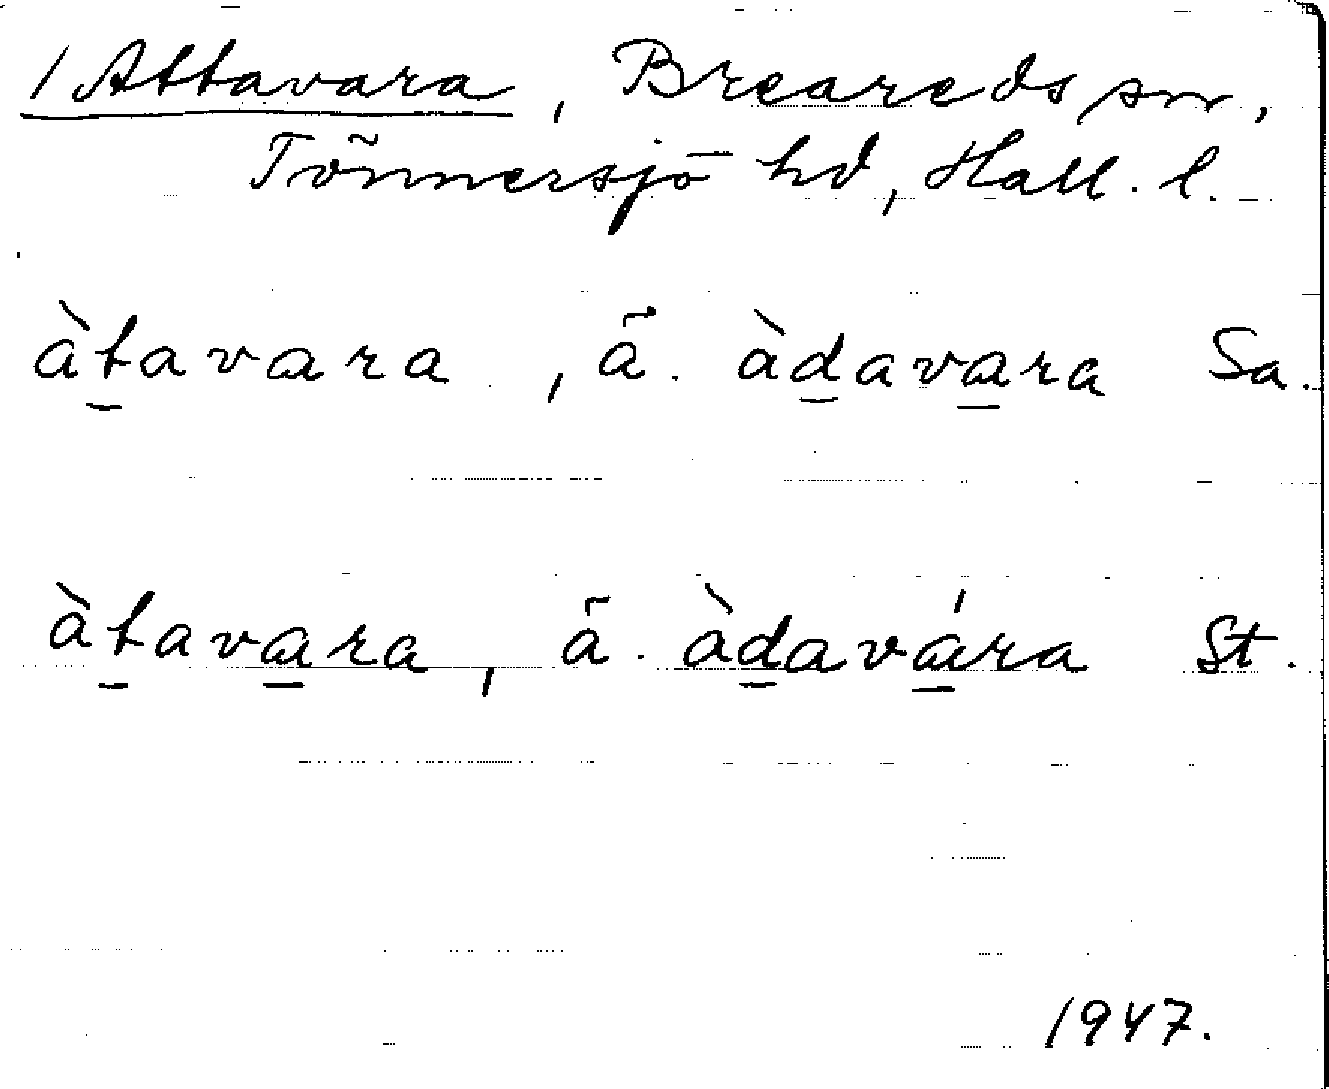 1 Attavara, Breareds sn,
Tönnersjö hd, Hall. l.
àt̲avara, ā. àd̲ava̲ra Sa.
àt̲ava̲ra, ā. àd̲avá̲ra St.
1947.